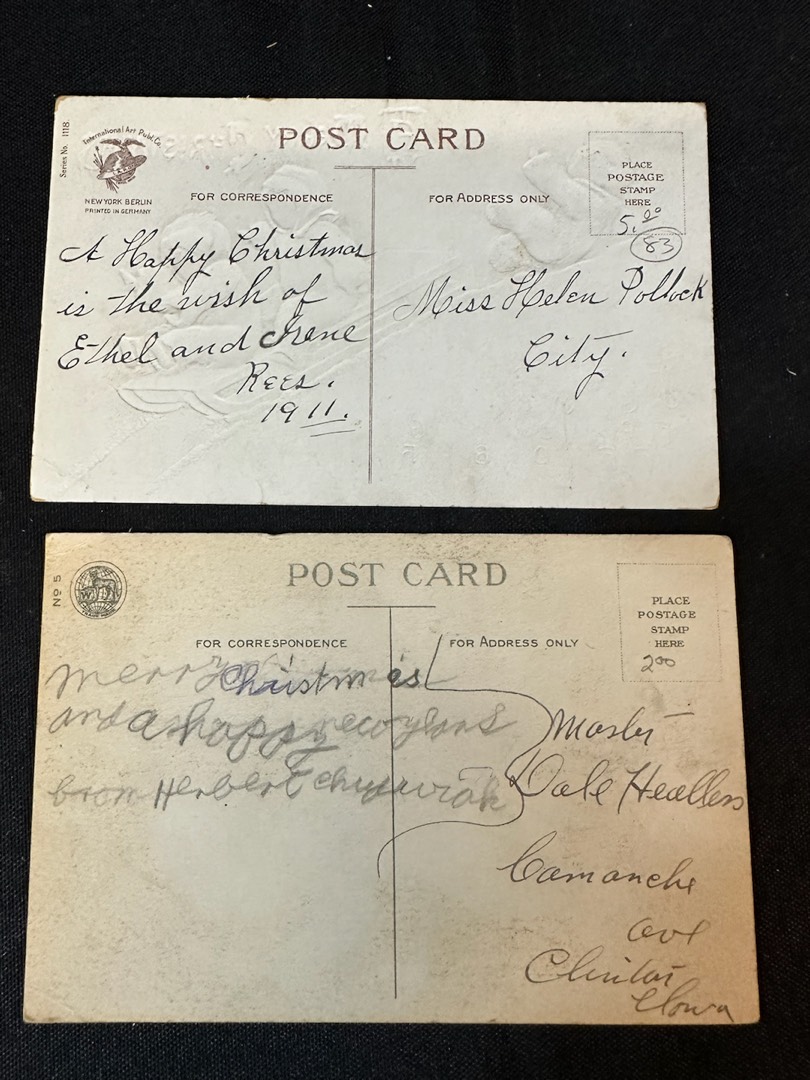 Series No. 1118
International Art Publ. Co.
NEW YORK BERLIN
PRINTED IN GERMANY
POST CARD
FOR CORRESPONDENCE
FOR ADDRESS ONLY
PLACE
POSTAGE
STAMP
HERE
5.00
83
A Happy Christmas
is the wish of
Ethel and Irene
Rees.
1911.
Miss Helen Pollock
City.
No 5
W
POST CARD
FOR CORRESPONDENCE
FOR ADDRESS ONLY
PLACE
POSTAGE
STAMP
HERE
200
merry Christmas
and a happy new years
from Herbert
Dale
Camanche
ave
Clinton
Iowa